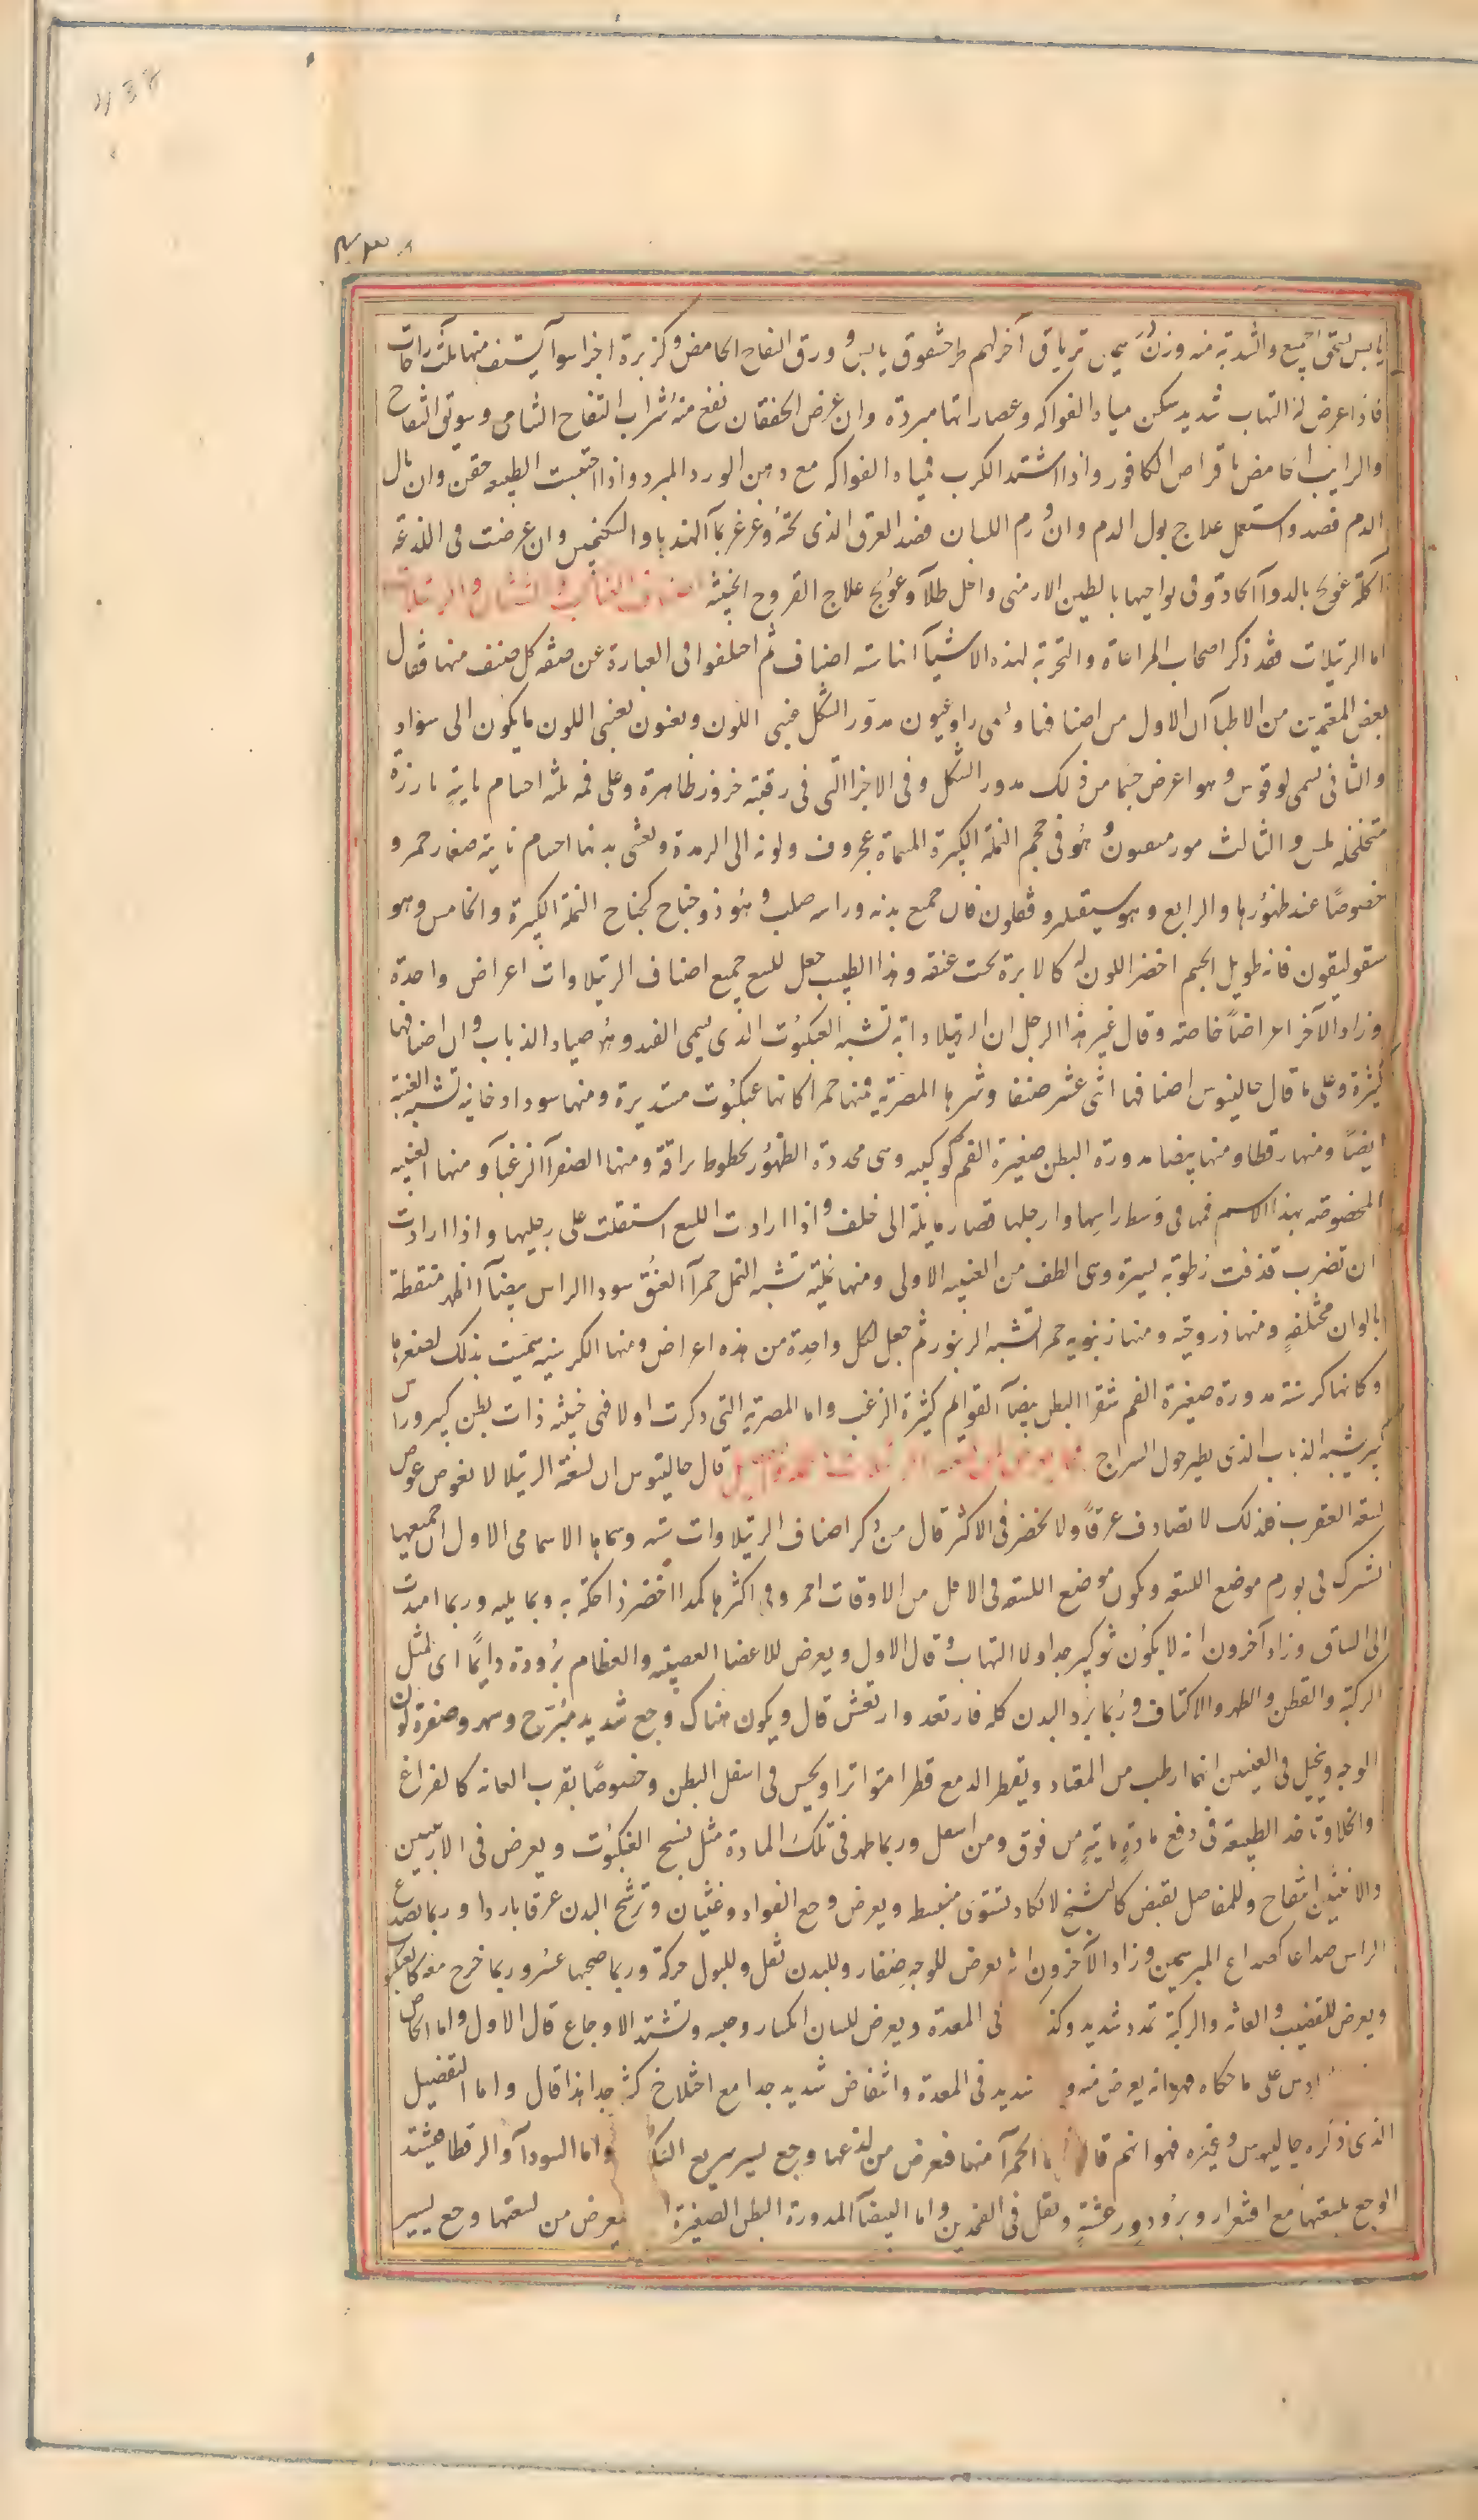 يابس يسحق الجميع والشربة منه وزن ترياق آخر لهم طرحشقوق يابس و ورق التفاح الحامض وكزبرة اجزا سوآ يستف منها ثلث راحات
فاذا عرض له التهاب شديد سكن مياه الفواكه وعصاراتها مبردة وان عرض الخفقان نفع منه شراب التفاح الشامى وسويق التفاح
والرايب الحامض باقراص الكافور واذا اشتد الكرب فمياه الفواكه مع دهن الورد المبرد واذا احتبست الطبيعه حقن وان بال
الدم فصد واستعمل علاج بول الدم وان ورم اللسان فصد العرق الذى تحته وغرغر بمآ الهندبا والسكنجبين وان عرضت فى اللذعة
آكلة عولج بالدوآ الحاد وفى نواحيها بالطين الارمنى والخل طلآ وعولج علاج القروح الخبيثه
اما الرتيلات فقد ذكر اصحاب المراعاة والتجربة لهذه الاشيآ انها سته اصناف ثم اختلفوا فى العبارة عن صفه كل صنف منها فقال
بعض المتقدمين من الاطبآ ان الاول من اصنافها وهى راوغيون مدور الشكل عنبى اللون ويعنون بعنبى اللون ما يكون الى سواد
والثانى يسمى لوقوس وهو اعرض جسما من ذلك مدور الشكل وفى الاجزا التى فى رقبته حزوز ظاهرة وعلى فمه ثلثه اجسام ناتية بارزة
متخلخله لمس والثالث مورميقون وهو فى حجم النملة الكبيرة المسماة عجروف ولونه الى الرمدة ويغشى بدنها اجسام ناتية صغار حمر و
خصوصا عند ظهورها والرابع وهو سيقلروقفلون فان جميع بدنه وراسه صلب وهو ذو جناح كجناح النملة الكبيرة والخامس وهو
سقوليقون فانه طويل الجسم اخضر اللون له كالابرة تحت عنقه وهذا الطبيب جعل للسع جميع اصناف الرتيلاوات اعراض واحدة
وزاد الآخر اعراضا خاصة وقال غير هذا الرجل ان الرتيلا دابة تشبه العنكبوت الذى يسمى الفهد وهو صياد الذباب وان اصنافها
كثيرة وعلى ما قال جالينوس اصنافها اثنى عشر صنفا وشرها المصرية فمنها حمرا كانها عنكبوت مستديرة ومنها سودا دخانية تشبه العنبة
ايضا ومنها رقطا ومنها بيضا مدورة البطن صغيرة الفم كوكبيه وهى محددة الظهور بخطوط براقة ومنها الصفرآ الزغبآ ومنها العنبيه
المخصوصه بهذا الاسم فمها فى وسط راسها وارجلها قصار مايلة الى خلف واذا ارادت اللسع استقلت على رجليها واذا ارادت
ان تضرب قذفت رطوبة يسيرة وهى الطف من العنبيه الاولى ومنها نملية تشبه النمل حمرآ العنق سودا الراس بيضآ الظهر منقطة
بالوان مختلفة ومنها ذروحيه ومنها زنبوريه حمرا تشبه الزنبور ثم جعل لكل واحدة من هذه اعراض ومنها الكرسنيه سميت بذلك لصغرها
وكانها كرسنة مدورة صغيرة الفم شقرا البطن بيضآ القوايم كثيرة الزغب واما المصرية التى ذكرت اولا فهى خبيثه ذات بطن كبير وراس
كبير يشبه الذباب الذى يطير حول السراج قال جالينوس ان لسعة الرتيلا لا تغوص غوص
لسعه العقرب فلذلك لا تصادف عرقا ولا تخضر فى الاكثر قال من ذكر اصناف الرتيلاوات سته وسماها الاسامى الاول ان جميعها
تشترك فى تورم موضع اللسعه ويكون موضع اللسعه فى الاقل من الاوقات احمر وفى اكثرها كمدا اخضر ذا حكة به وبما يليه وربما امتدت
الى الساق وزاد آخرون انه لا يكون نتو كبير جدا ولا التهاب وقال الاول ويعرض للاعضا العصبيه والعظام برودة دايما اى لمثل
الركبة والقطن والظهر والاكتاف وربما برد البدن كله فارتعد وارتعش قال ويكون هناك وجع شديد مبرح وسهر وصفرة لون
الوجه ويخيل فى العينين انها ارطب من المعتاد ويقطر الدمع قطرا متواترا ويحس فى اسفل البطن وخصوصا بقرب العانه كالفراغ
والخلا وتاخذ الطبيعة فى دفع مادة ماتية من فوق ومن اسفل وربما ظهر فى تلك المادة مثل نسج العنكبوت ويعرض فى الاربيتين
والانثيين انتفاخ وللمفاصل تقبض كالتشنج لا تكاد تستوى منبسطه ويعرض وجع الفواد وغثيان وترشح البدن عرقا باردا وربما يصدع
الراس صداعا كصداع المبرسمين وزاد الآخرون انه يعرض للوجه صفار وللبدن ثقل وللبول حركة وربما صحبها عسر وربما خرج معه كالعنكبوت
ويعرض للقضيب والعانه والركبة تمدد شديد وكذ فى المعدة ويعرض للسان انكسار وحبسه وتشتد الاوجاع قال الاول واما الخاص
على ما حكاه فهو انه يعرض منه و شديد فى المعدة وانتفاض شديد جدا مع اختلاج كثير جدا هذا قال واما التفصيل
الذى ذكره جالينوس وغيره فهو انهم قا الحمرآ منها فتعرض من لدغها وجع يسير سريع السكـ واما السودآ والرقطا فيشتد
الوجع بلسعتها مع اقشعرار وبرودة ورعشة وثقل فى الفخذين واما البيضآ المدورة البطن الصغيرة فيعرض من لسعتها وجع يسير